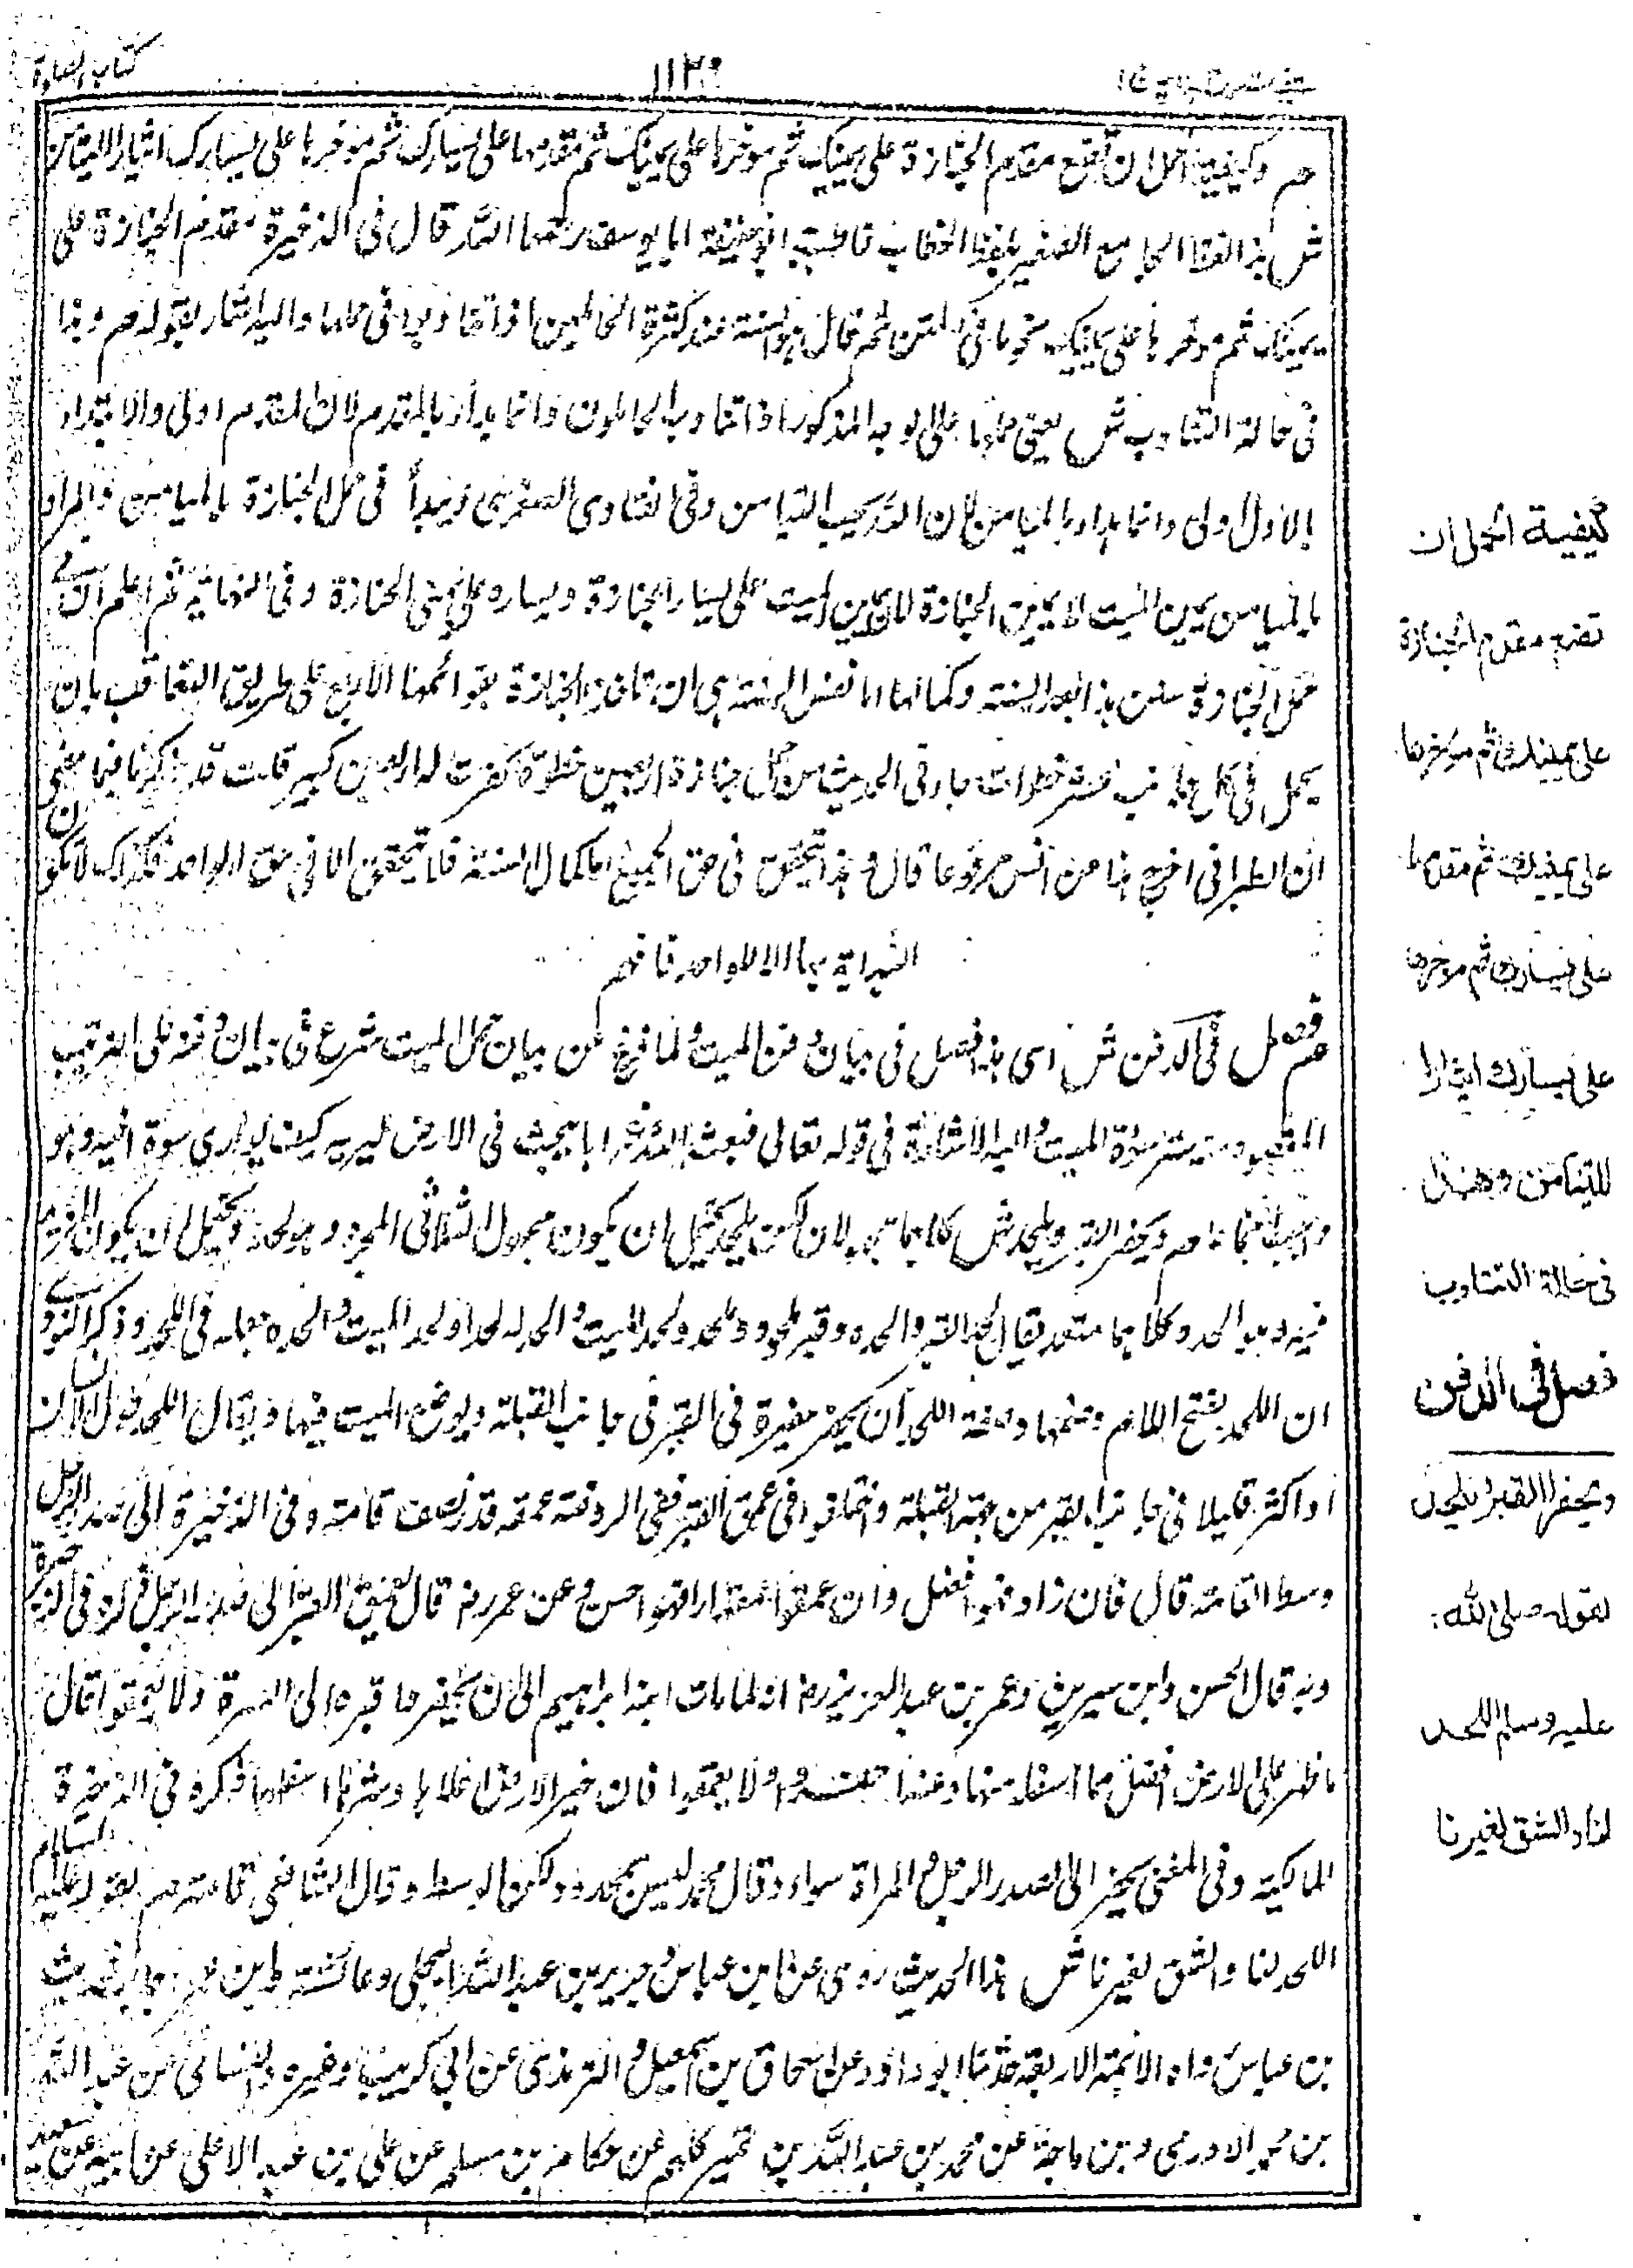 كتاب الصلاة
١١٢٠
م وكيفية الحمل ان تضع مقدم الجنازة على يمينك ثم مؤخرها على يمينك ثم مقدمها على يسارك ثم مؤخرها على يسارك ايثارا للتيامن
ش هذا لفظ الجامع الصغير بلفظ الخطاب خاطب ابو حنيفة ابا يوسف رحمهما الله قال في الذخيرة مقدم الجنازة على
يمينك ثم مؤخرها على يمينك نحو ما في المتن ثم قال هو السنة عند كثرة الحاملين اذا تناوبوا في حملها واليه اشار بقوله م وهذا
في حالة التناوب ش يعني حملها على الوجه المذكور اذا تناوب الحاملون وانما يبدأ بالمقدم لان المقدم اولى والابتداء
بالاول اولى وانما يبدأ بالميامن لان الله يحب التيامن وفي الفتاوى الصغرى ويبدأ في حمل الجنازة بالميامن والمراد
بالميامن يمين الميت لا يمين الجنازة لان يمين الميت على يسار الجنازة ويساره على يمنى الجنازة وفي النهاية ثم اعلم ان في
حمل الجنازة سنن هذا نفس السنة وكمالها اما نفس السنة هي ان تأخذ الجنازة بقوائمها الاربع على طريق التعاقب بان
يحمل في كل جانب عشر خطوات جاء في الحديث من حمل جنازة اربعين خطوة كفرت له اربعين كبيرة قلت قد ذكرنا فيما مضى
ان الطبراني اخرج هذا من انس مرفوعا قال وهذا يتحقق في حق الجميع اما كمال السنة فلا يتحقق الا في حق الواحد فكذلك لا تكون
البداية بها الا للواحد فافهم
م فصل في الدفن ش اي هذا فصل في بيان دفن الميت ولما فرغ عن بيان حمل الميت شرع في بيان دفنه على الترتيب
المقصود منه ستر سوءة الميت واليه الاشارة في قوله تعالى فبعث الله غرابا يبحث في الارض ليريه كيف يواري سوءة اخيه وهو
واجب اجماعا م ويحفر القبر ويلحد ش كلاهما مجهولان لكن يلحد يحتمل ان يكون مجهول الثلاثي المجرد وهو لحد ويحتمل ان يكون المزيد
فيه وهو الحد وكلاهما متعد يقال لحد القبر والحده وقبر ملحود وملحد ولحد للميت والحد له لحدا ولحد الميت والحده جعله في اللحد وذكر النووي
ان اللحد بفتح اللام وضمها وصفة اللحد ان يحفر حفيرة في القبر في جانب القبلة ويوضع الميت فيها ويقال اللحد قول الآن
او اكثر قليلا في جانب القبر من جهة القبلة واختلفوا في عمق القبر ففي الروضة عمقه قدر نصف قامة وفي الذخيرة الى صدر الرجل
وسط القامة قال فان زاد فهو افضل وان عمقوا مقدار قامة فهو احسن وعن عمر رض قال يعمق القبر الى صدر الرجل ذكره في الذخيرة
وبه قال الحسن وابن سيرين وعمر بن عبد العزيز رض انه لما مات ابنه ابراهيم الى ان يحفروا قبره الى السرة ولا تعمقوا قال
ما ظهر على الارض افضل مما اسفل منها وعند الحسن ولا يعمقوا فان خير الارض اعلاها وشرها اسفلها ذكره في الذخيرة
المالكية وفي المغني يحفر الى الصدر الرجل والمرأة سواء وقال محمد ليس بمحدود ولكن الوسط وقال الشافعي قامة م لقوله عليه السلام
اللحد لنا والشق لغيرنا ش هذا الحديث روى عن ابن عباس وجرير بن عبد الله البجلي وعائشة وابن عمر وجابر فحديث
بن عباس رواه الائمة الاربعة حدثنا ابو داؤد عن اسحاق بن اسمعيل والترمذي عن ابي كريب وغيره والنسائي عن عبد الله
بن محمد الاذرمي وبن ماجة عن محمد بن عبد الله بن نمير كلهم عن حكام بن مسلم عن علي بن عبد الاعلى عن ابيه عن سعيد
كيفية الحمل ان
تضع مقدم الجنازة
على يمينك ثم مؤخرها
على يمينك ثم مقدمها
على يسارك ثم مؤخرها
على يسارك ايثارا
للتيامن وهذا
في حالة التناوب
فصل في الدفن
ويحفر القبر ويلحد
لقوله صلى الله
عليه وسلم اللحد
لنا والشق لغيرنا